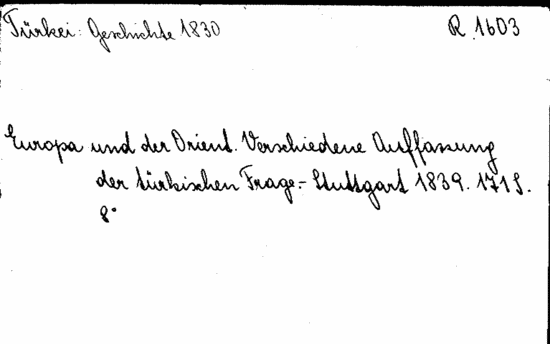 Türkei: Geschichte 1830
R 1603
Europa und der Orient. Verschiedene Auffassung
der türkischen Frage.- Stuttgart 1839. 171 S.
8°